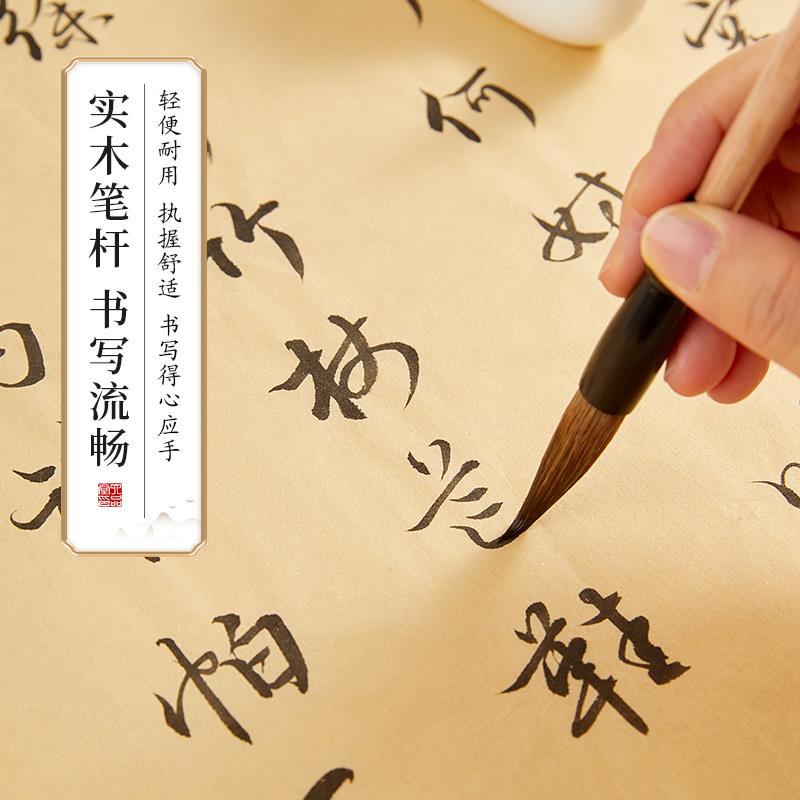 实木笔杆 书写流畅
轻便耐用 执握舒适 书写得心应手
何妨
竹杖芒鞋
怕